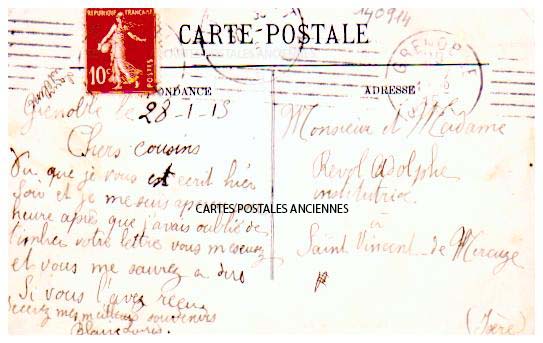 140914
RÉPUBLIQUE FRANÇAISE
10c
POSTES
CARTE POSTALE
GRENOBLE
ONDANCE
ADRESSE
Grenoble le
28-1-13
Chers cousins
Vu que je vous est ecrit hier
soir et je me suis aperçu
heure après que j'avais oublié de
timbrer votre lettre vous m'escusez
et vous me
Si vous l'avez reçue
recevez mes meilleurs souvenirs
Monsieur et Madame
Revol Adolphe
institutrice
à
Saint Vincent de Mercuze
(Isère)
CARTES POSTALES ANCIENNES